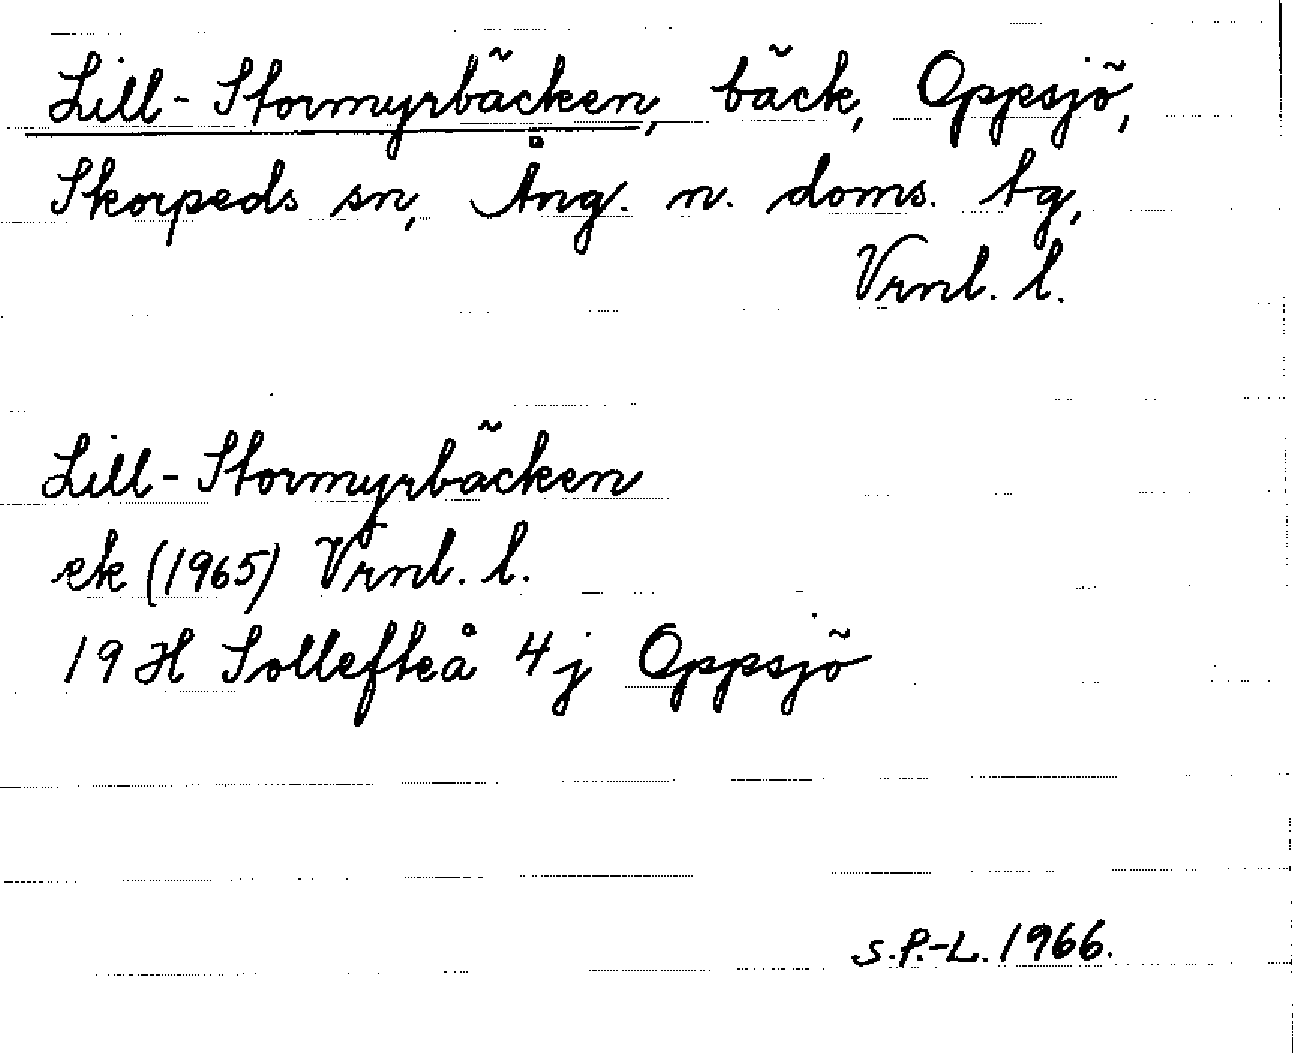 Lill-Stormyrbäcken, bäck, Oppsjö,
Skorpeds sn, Ång. n. doms. tg,
Vrnl. l.
Lill-Stormyrbäcken
ek (1965) Vrnl. l.
19 H Sollefteå 4 j Oppsjö
S.P.-L. 1966.